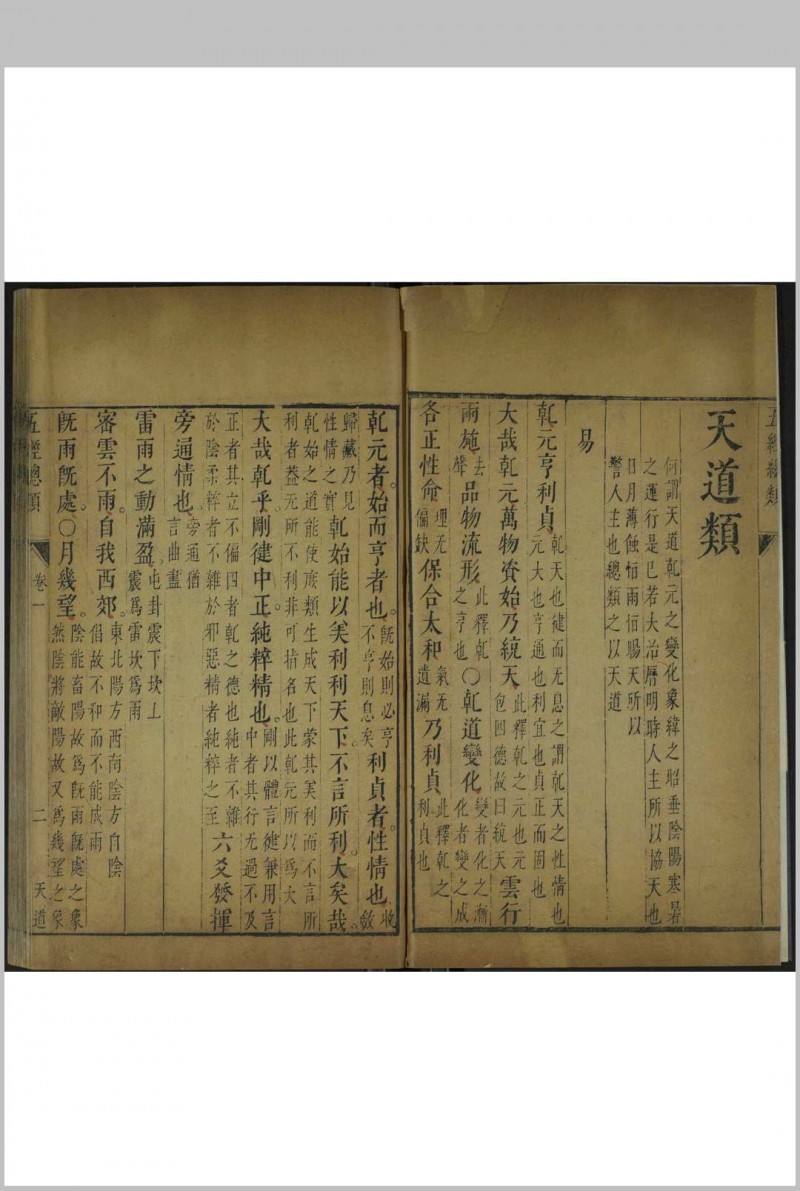 五經總類
天道類
何謂天道乾元之變化象緯之昭垂陰陽寒暑
之運行是已若夫治曆明時人主所以協天也
日月薄蝕恒雨恒暘天所以
警人主也總類之以天道
易
乾元亨利貞乾天也健而无息之謂乾天之性情也元大也亨通也利宜也貞正而固也
大哉乾元萬物資始乃統天此釋乾之元也元包四德故曰統天雲行
雨施去聲品物流形此釋乾之亨也○乾道變化變者化之漸化者變之成
各正性命理无偏缺保合太和氣无遺漏乃利貞此釋乾之利貞也
乾元者始而亨者也既始則必亨不亨則息矣利貞者性情也收斂
歸藏乃見性情之實乾始能以美利利天下不言所利大矣哉
乾始之道能使庶類生成天下蒙其美利而不言所利者蓋无所不利非可指名也此乾元所以為大
大哉乾乎剛健中正純粹精也剛以體言健兼用言中者其行无過不及
正者其立不偏四者乾之德也純者不雜於陰柔粹者不雜於邪惡精者純粹之至六爻發揮
旁通情也旁通猶言曲盡
雷雨之動滿盈屯卦震下坎上震為雷坎為雨
密雲不雨自我西郊東北陽方西南陰方自陰倡故不和而不能成雨
既雨既處○月幾望陰能畜陽故為既雨既處之象然陰將敵陽故又為幾望之象
五經總類
卷一
二
天道